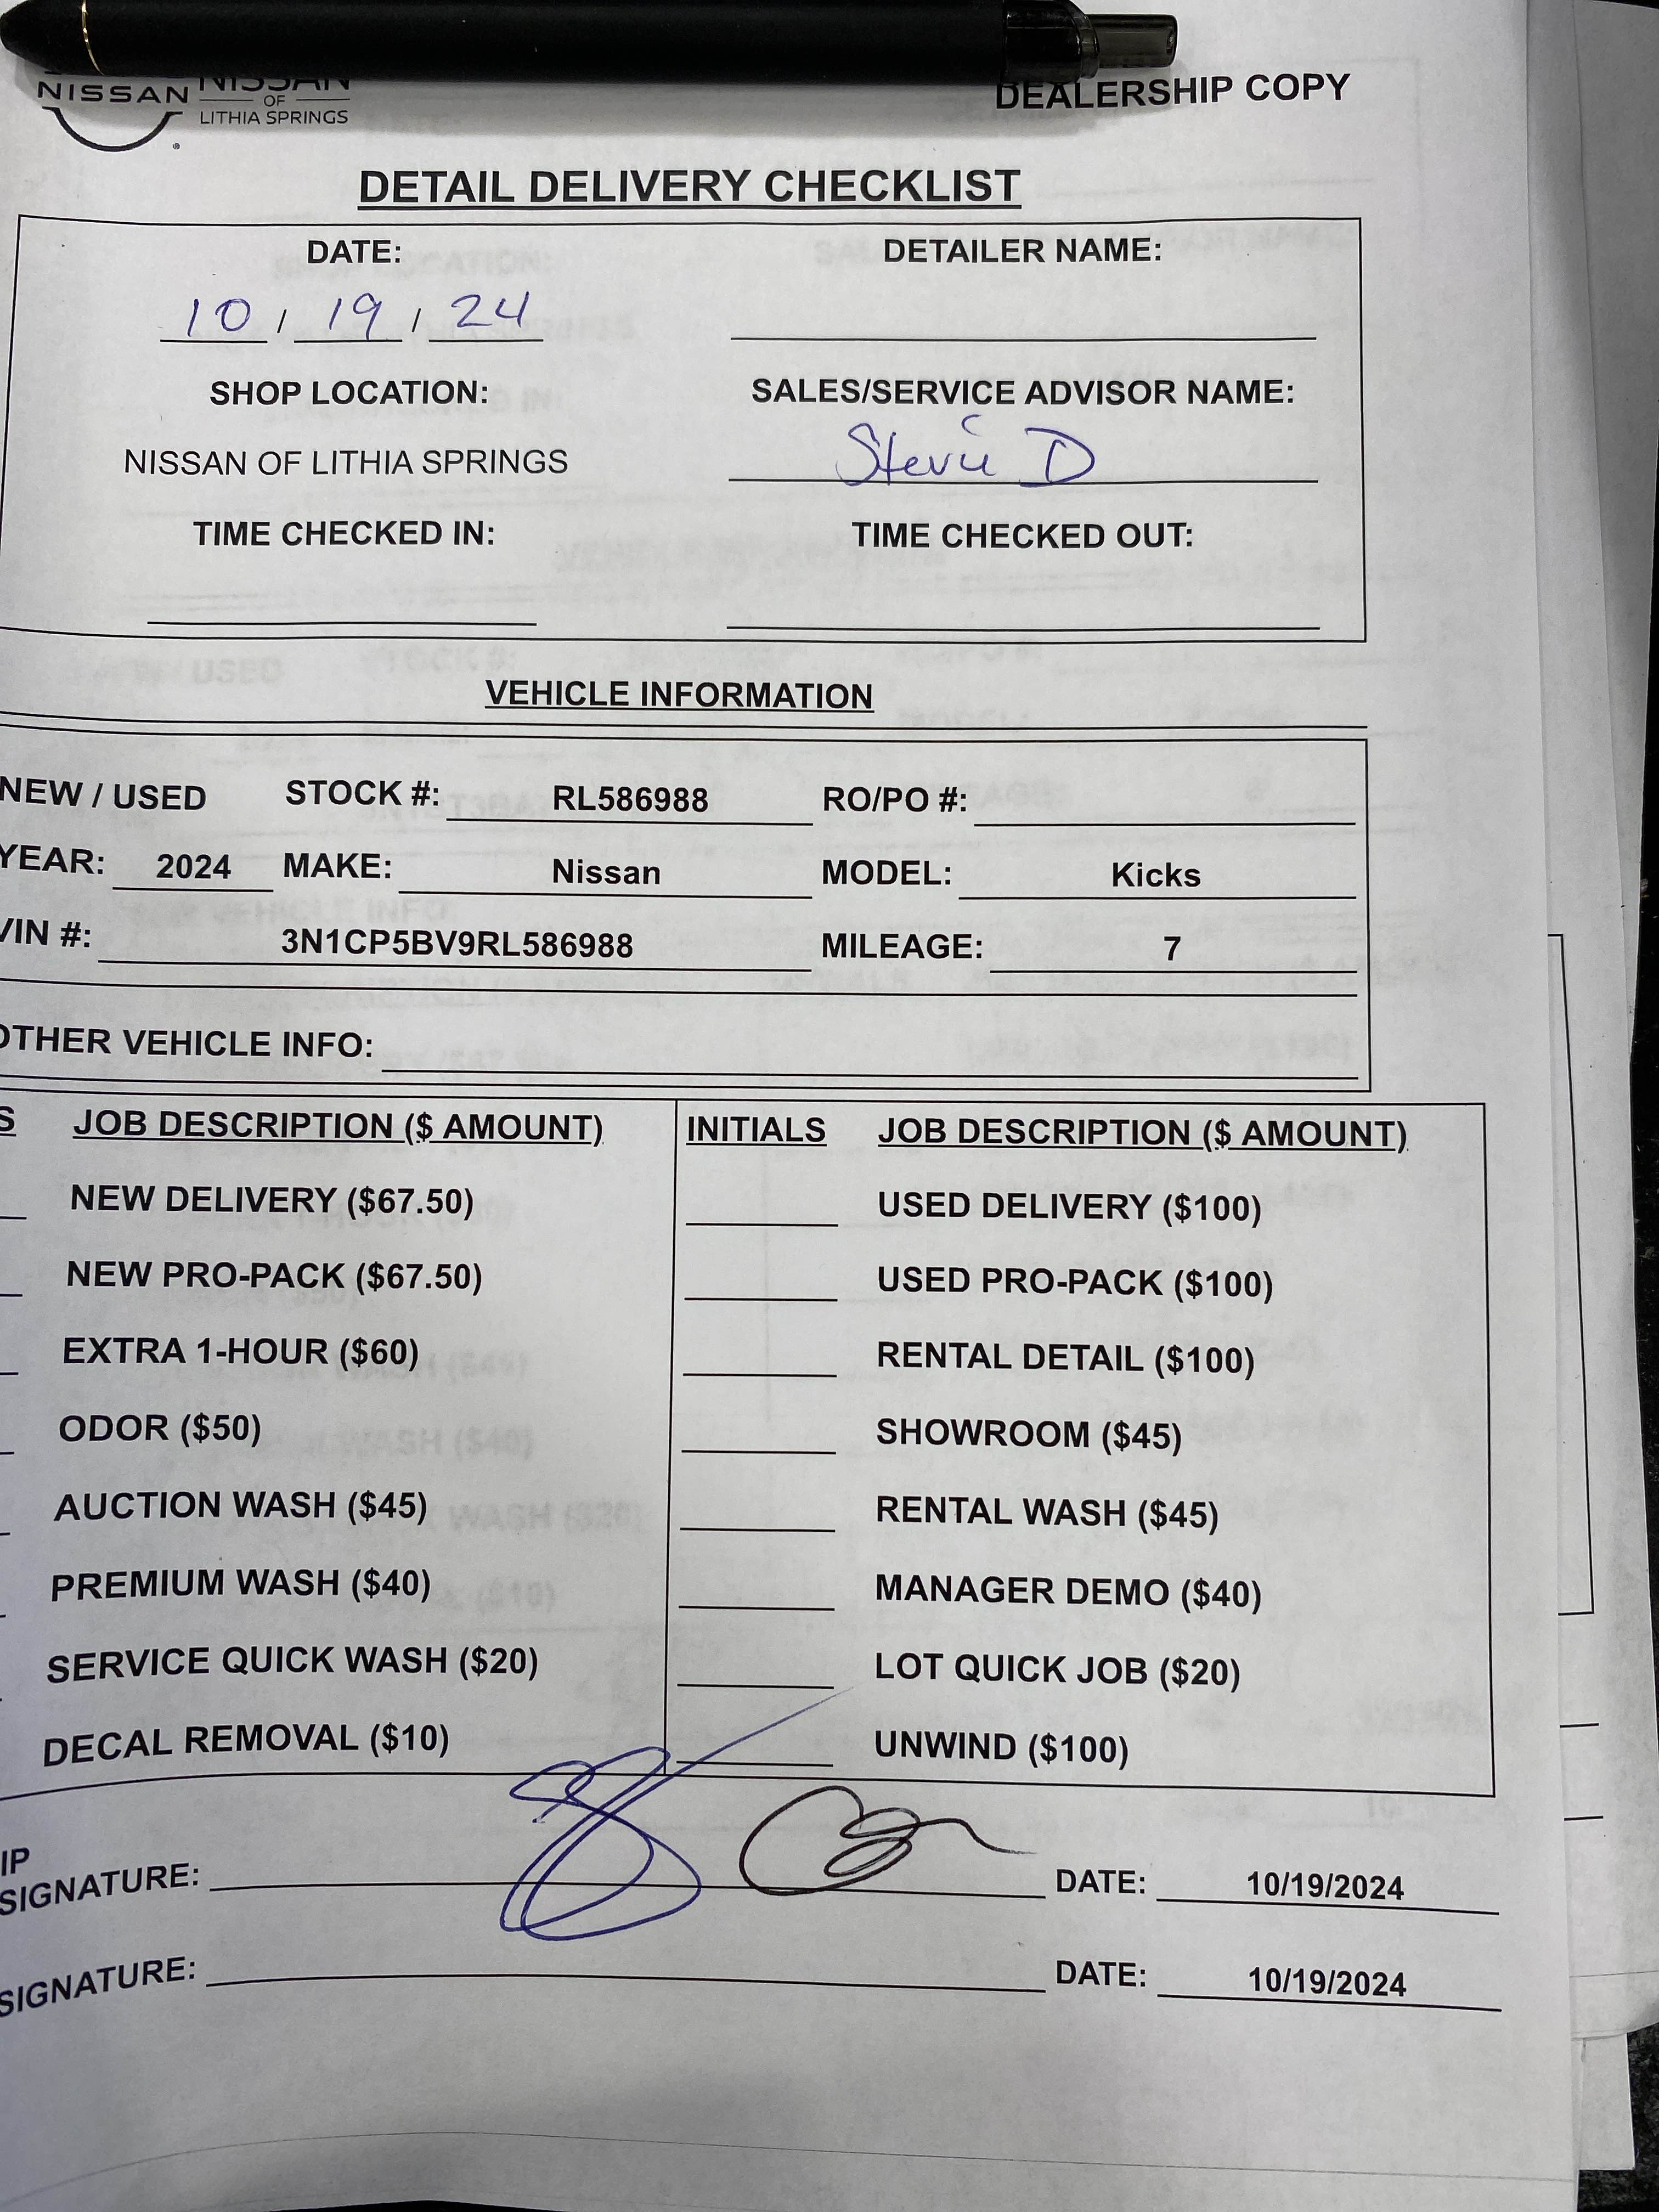 NISSAN NISSAN DEALERSHIP COPY
OF
LITHIA SPRINGS
DETAIL DELIVERY CHECKLIST
DATE: DETAILER NAME:
10 / 19 / 24
SHOP LOCATION: SALES/SERVICE ADVISOR NAME:
NISSAN OF LITHIA SPRINGS Stevie D
TIME CHECKED IN: TIME CHECKED OUT:
VEHICLE INFORMATION
NEW / USED STOCK #: RL586988 RO/PO #:
YEAR: 2024 MAKE: Nissan MODEL: Kicks
VIN #: 3N1CP5BV9RL586988 MILEAGE: 7
OTHER VEHICLE INFO:
S JOB DESCRIPTION ($ AMOUNT) INITIALS JOB DESCRIPTION ($ AMOUNT)
NEW DELIVERY ($67.50) USED DELIVERY ($100)
NEW PRO-PACK ($67.50) USED PRO-PACK ($100)
EXTRA 1-HOUR ($60) RENTAL DETAIL ($100)
ODOR ($50) SHOWROOM ($45)
AUCTION WASH ($45) RENTAL WASH ($45)
PREMIUM WASH ($40) MANAGER DEMO ($40)
SERVICE QUICK WASH ($20) LOT QUICK JOB ($20)
DECAL REMOVAL ($10) UNWIND ($100)
IP
SIGNATURE: DATE: 10/19/2024
SIGNATURE: DATE: 10/19/2024